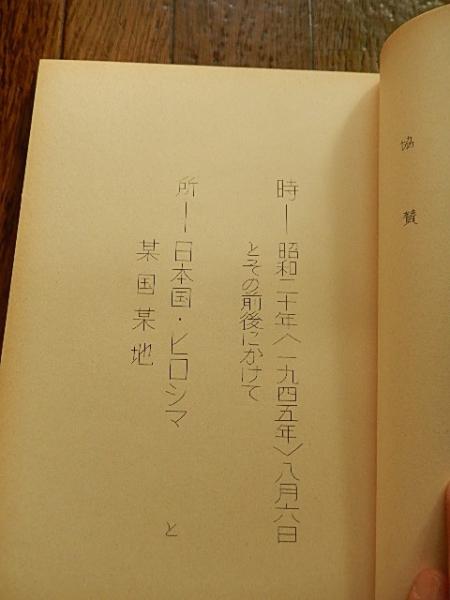 協賛
時―昭和二十年〈一九四五年〉八月六日
とその前後にかけて
所―日本国・ヒロシマ　と
某国某地